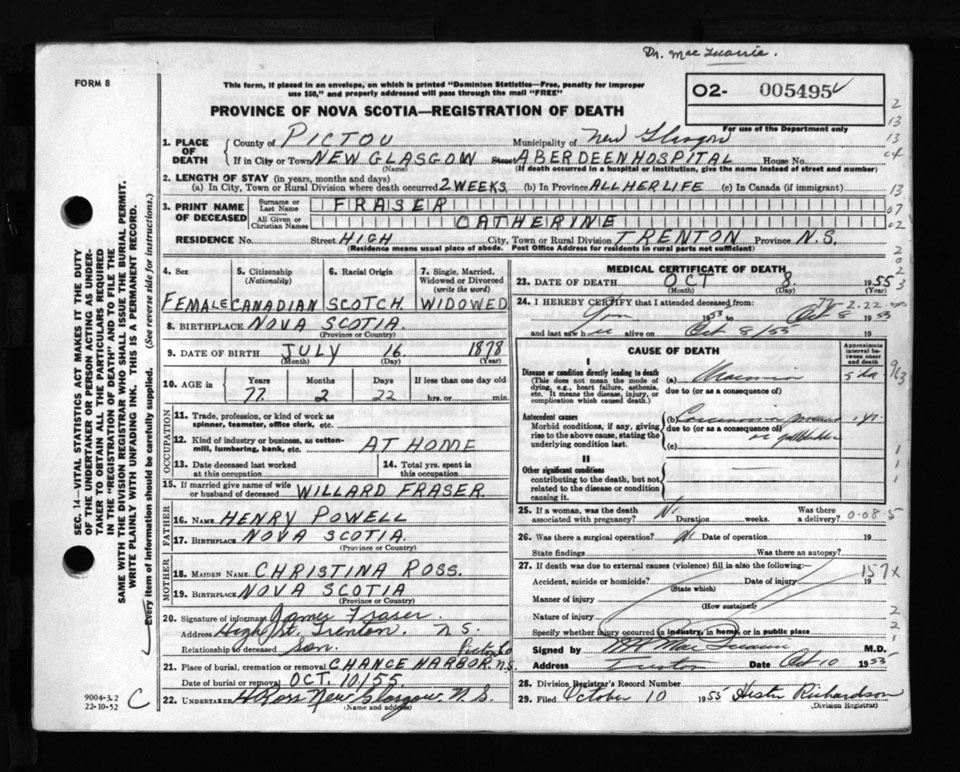 Dr. MacQuarrie.
FORM 8
This form, if placed in an envelope, on which is printed "Dominion Statistics—Free, penalty for improper
use $50," and properly addressed will pass through the mail "FREE"
O2- 005495
For use of the Department only
PROVINCE OF NOVA SCOTIA—REGISTRATION OF DEATH
1. PLACE OF DEATH
County of PICTOU Municipality of New Glasgow
If in City or Town NEW GLASGOW Street ABERDEEN HOSPITAL House No.
(Name) (If death occurred in a hospital or institution, give the name instead of street and number)
2. LENGTH OF STAY (in years, months and days)
(a) In City, Town or Rural Division where death occurred 2 WEEKS (b) In Province ALL HER LIFE (c) In Canada (if immigrant)
3. PRINT NAME OF DECEASED
Surname or Last Name FRASER
All Given or Christian Names CATHERINE
RESIDENCE No. Street HIGH City, Town or Rural Division TRENTON Province N.S.
(Residence means usual place of abode. Post Office Address for residents in rural parts not sufficient)
4. Sex FEMALE
5. Citizenship (Nationality) CANADIAN
6. Racial Origin SCOTCH
7. Single, Married, Widowed or Divorced (write the word) WIDOWED
8. BIRTHPLACE NOVA SCOTIA.
(Province or Country)
9. DATE OF BIRTH JULY 16. 1878
(Month) (Day) (Year)
10. AGE in Years 77 Months 2 Days 22 If less than one day old hrs. or min.
OCCUPATION
11. Trade, profession, or kind of work as spinner, teamster, office clerk, etc.
12. Kind of industry or business, as cotton-mill, lumbering, bank, etc. AT HOME
13. Date deceased last worked at this occupation
14. Total yrs. spent in this occupation
15. If married give name of wife or husband of deceased WILLARD FRASER.
FATHER
16. NAME HENRY POWELL
17. BIRTHPLACE NOVA SCOTIA.
(Province or Country)
MOTHER
18. MAIDEN NAME CHRISTINA ROSS.
19. BIRTHPLACE NOVA SCOTIA
(Province or Country)
20. Signature of informant James Fraser.
Address High St. Trenton. N.S.
Relationship to deceased son.
Pictou Co
21. Place of burial, cremation or removal CHANCE HARBOR. N.S.
Date of burial or removal OCT. 10/55
22. UNDERTAKER H Ross New Glasgow. N.S.
(Name and address)
MEDICAL CERTIFICATE OF DEATH
23. DATE OF DEATH OCT 8. 1955
(Month) (Day) (Year)
24. I HEREBY CERTIFY that I attended deceased from
1953 to Oct 8 1955
and last saw her alive on Oct 8/55 19
CAUSE OF DEATH
Approximate interval between onset and death
I
Disease or condition directly leading to death
(This does not mean the mode of dying, e.g., heart failure, asthenia, etc. It means the disease, injury, or complication which caused death.)
(a)
due to (or as a consequence of)
Antecedent causes
Morbid conditions, if any, giving rise to the above cause, stating the underlying condition last.
(b) Carcinoma
due to (or as a consequence of)
or gallbladder
(c)
II
Other significant conditions
contributing to the death, but not related to the disease or condition causing it.
25. If a woman, was the death associated with pregnancy? No Duration weeks. Was there a delivery?
26. Was there a surgical operation? No Date of operation 19
State findings Was there an autopsy?
27. If death was due to external causes (violence) fill in also the following:
Accident, suicide or homicide? Date of injury 19
(State which)
157x
Manner of injury
(How sustained)
Nature of injury
Specify whether injury occurred in industry, in home, or in public place
Signed by MacQuarrie M.D.
Address Trenton Date Oct 10 1955
28. Division Registrar's Record Number
29. Filed October 10 1955 Hester Richardson
(Division Registrar)
SEC. 14—VITAL STATISTICS ACT MAKES IT THE DUTY
OF THE UNDERTAKER OR PERSON ACTING AS UNDER-
TAKER TO OBTAIN ALL THE PARTICULARS REQUIRED
IN THE "REGISTRATION OF DEATH" AND TO FILE THE
SAME WITH THE DIVISION REGISTRAR WHO SHALL ISSUE THE BURIAL PERMIT.
WRITE PLAINLY WITH UNFADING INK. THIS IS A PERMANENT RECORD.
Every item of information should be carefully supplied. (See reverse side for instructions.)
9004-3.2
22-10-52
C